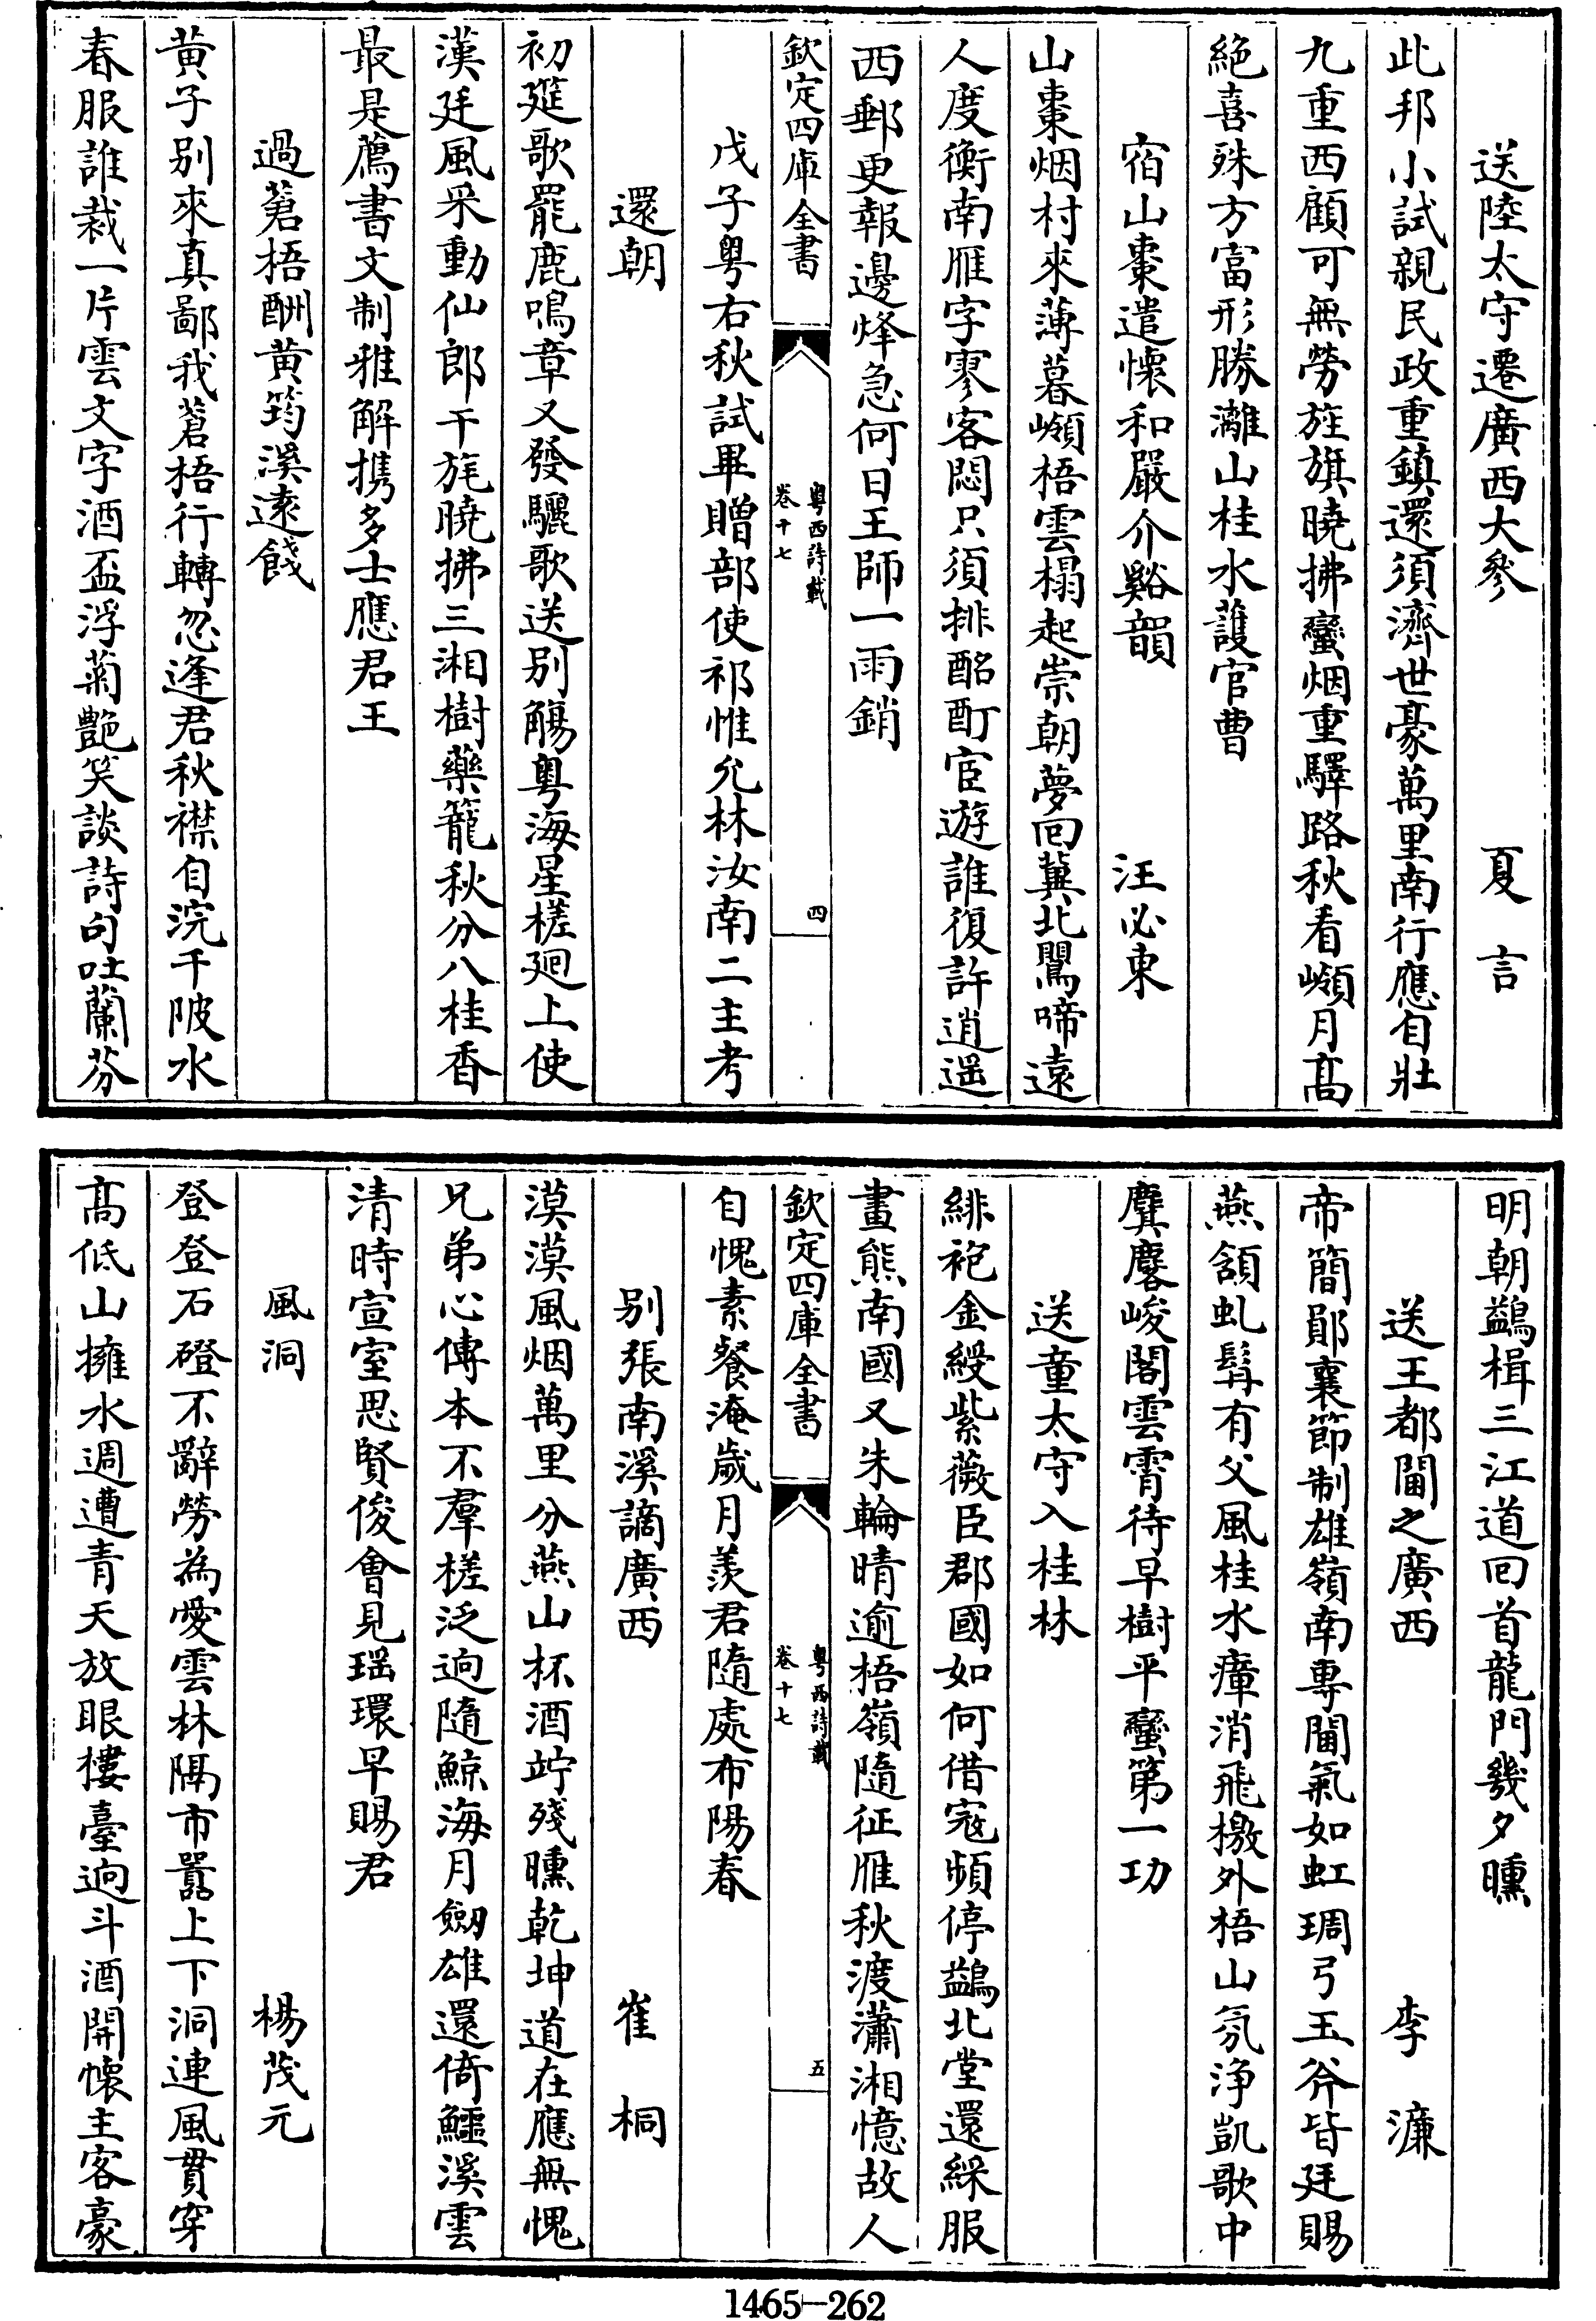 送陸太守遷廣西大參　夏言
此邦小試親民政重鎮還須濟世豪萬里南行應自壯
九重西顧可無勞旌旗曉拂蠻烟重驛路秋看嶺月髙
絶喜殊方富形勝灕山桂水護官曹
宿山棗遣懷和嚴介谿韻　汪必東
山棗烟村來薄暮嶺梧雲榻起崇朝夢回冀北鶑啼遠
人度衡南雁字寥客悶只須排酩酊宦遊誰復許逍遥
西郵更報邊烽急何日王師一雨銷
欽定四庫全書　粤西詩載 卷十七　四
戊子粤右秋試畢贈部使祁惟允林汝南二主考
還朝
初筵歌罷鹿鳴章又發驪歌送别觴粤海星槎廻上使
漢廷風采動仙郎干旄曉拂三湘樹藥籠秋分八桂香
最是薦書文制雅解携多士應君王
過蒼梧酬黄筠溪逺餞
黄子别來真鄙我蒼梧行轉忽逢君秋襟自浣千陂水
春服誰裁一片雲文字酒盃浮菊艶笑談詩句吐蘭芬
明朝鷁楫三江道回首龍門幾夕曛
送王都閫之廣西　李濂
帝簡鄖襄節制雄嶺南專閫氣如虹琱弓玉斧皆廷賜
燕頷虬髯有父風桂水瘴消飛檄外梧山氛浄凱歌中
麒麐峻閣雲霄待早樹平蠻第一功
送童太守入桂林
緋袍金綬紫薇臣郡國如何借寇頻停鷁北堂還綵服
畫熊南國又朱輪晴逾梧嶺隨征雁秋渡瀟湘憶故人
欽定四庫全書　粤西詩載 卷十七　五
自愧素餐淹歲月羨君隨處布陽春
别張南溪謫廣西　崔桐
漠漠風烟萬里分燕山杯酒竚殘曛乾坤道在應無愧
兄弟心傳本不羣槎泛逈隨鯨海月劒雄還倚鱷溪雲
清時宣室思賢俊會見瑶環早賜君
風洞　楊茂元
登登石磴不辭勞為愛雲林隔市嚣上下洞連風貫穿
髙低山擁水週遭青天放眼樓臺逈斗酒開懷主客豪
1465-262